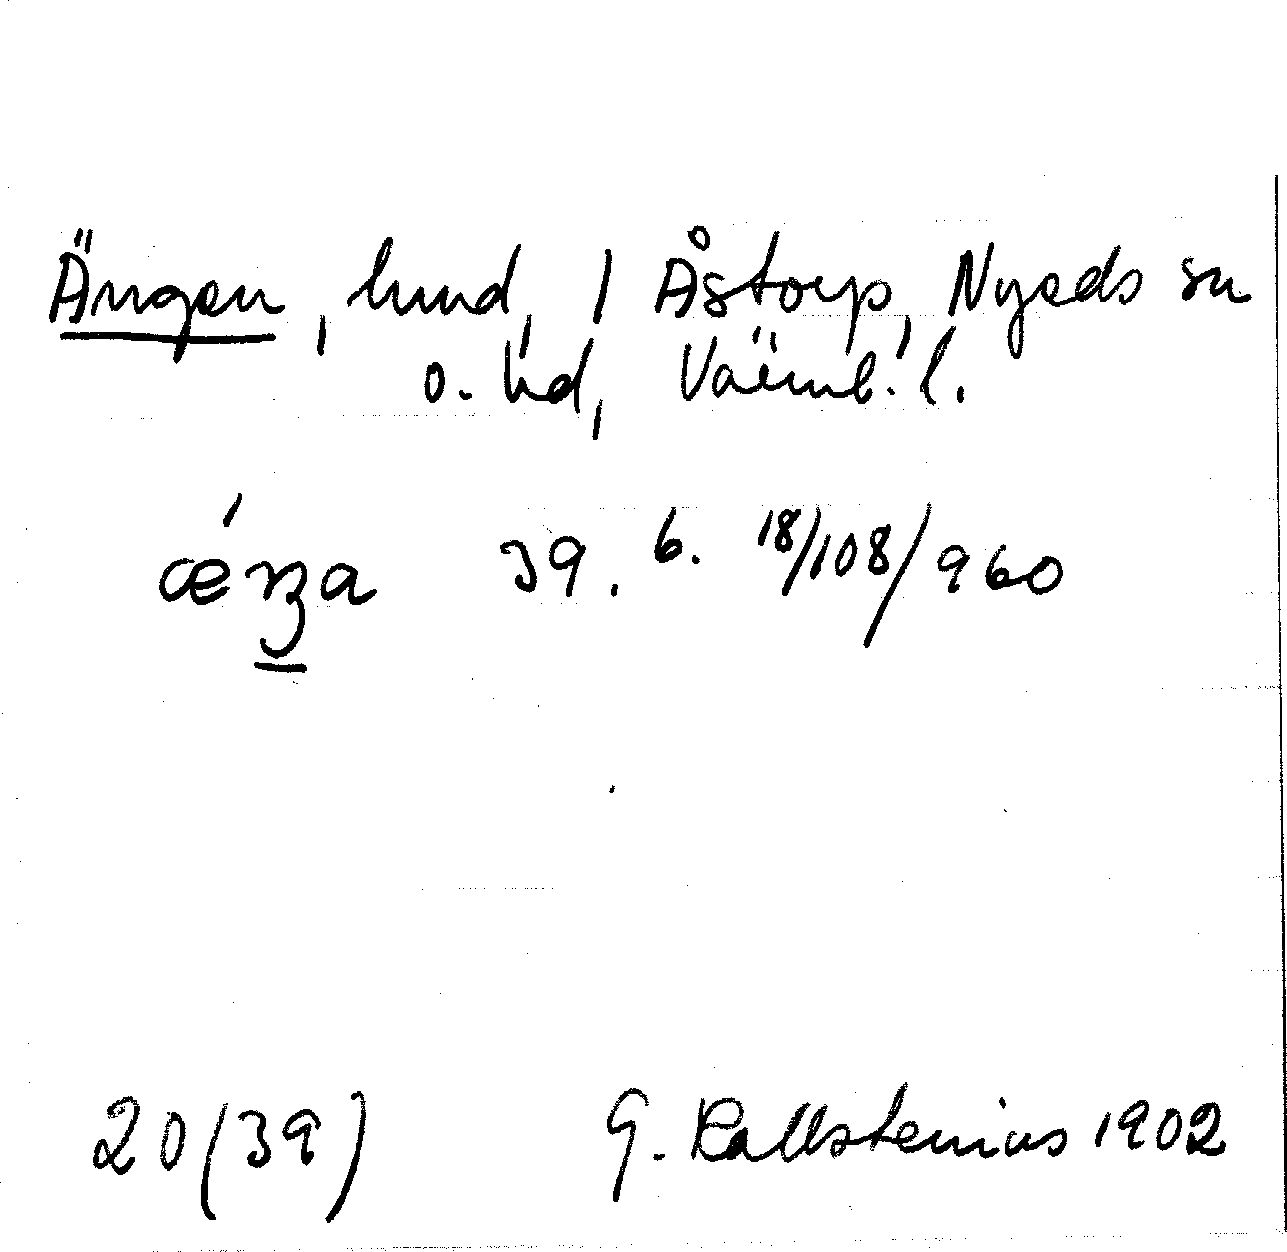 Ängen, lund, / Åstorp, Nyeds sn
o. hd, Värml. l.
ǽnʒa 39. 6. 18/108/960
20(39) G. Kallstenius 1902